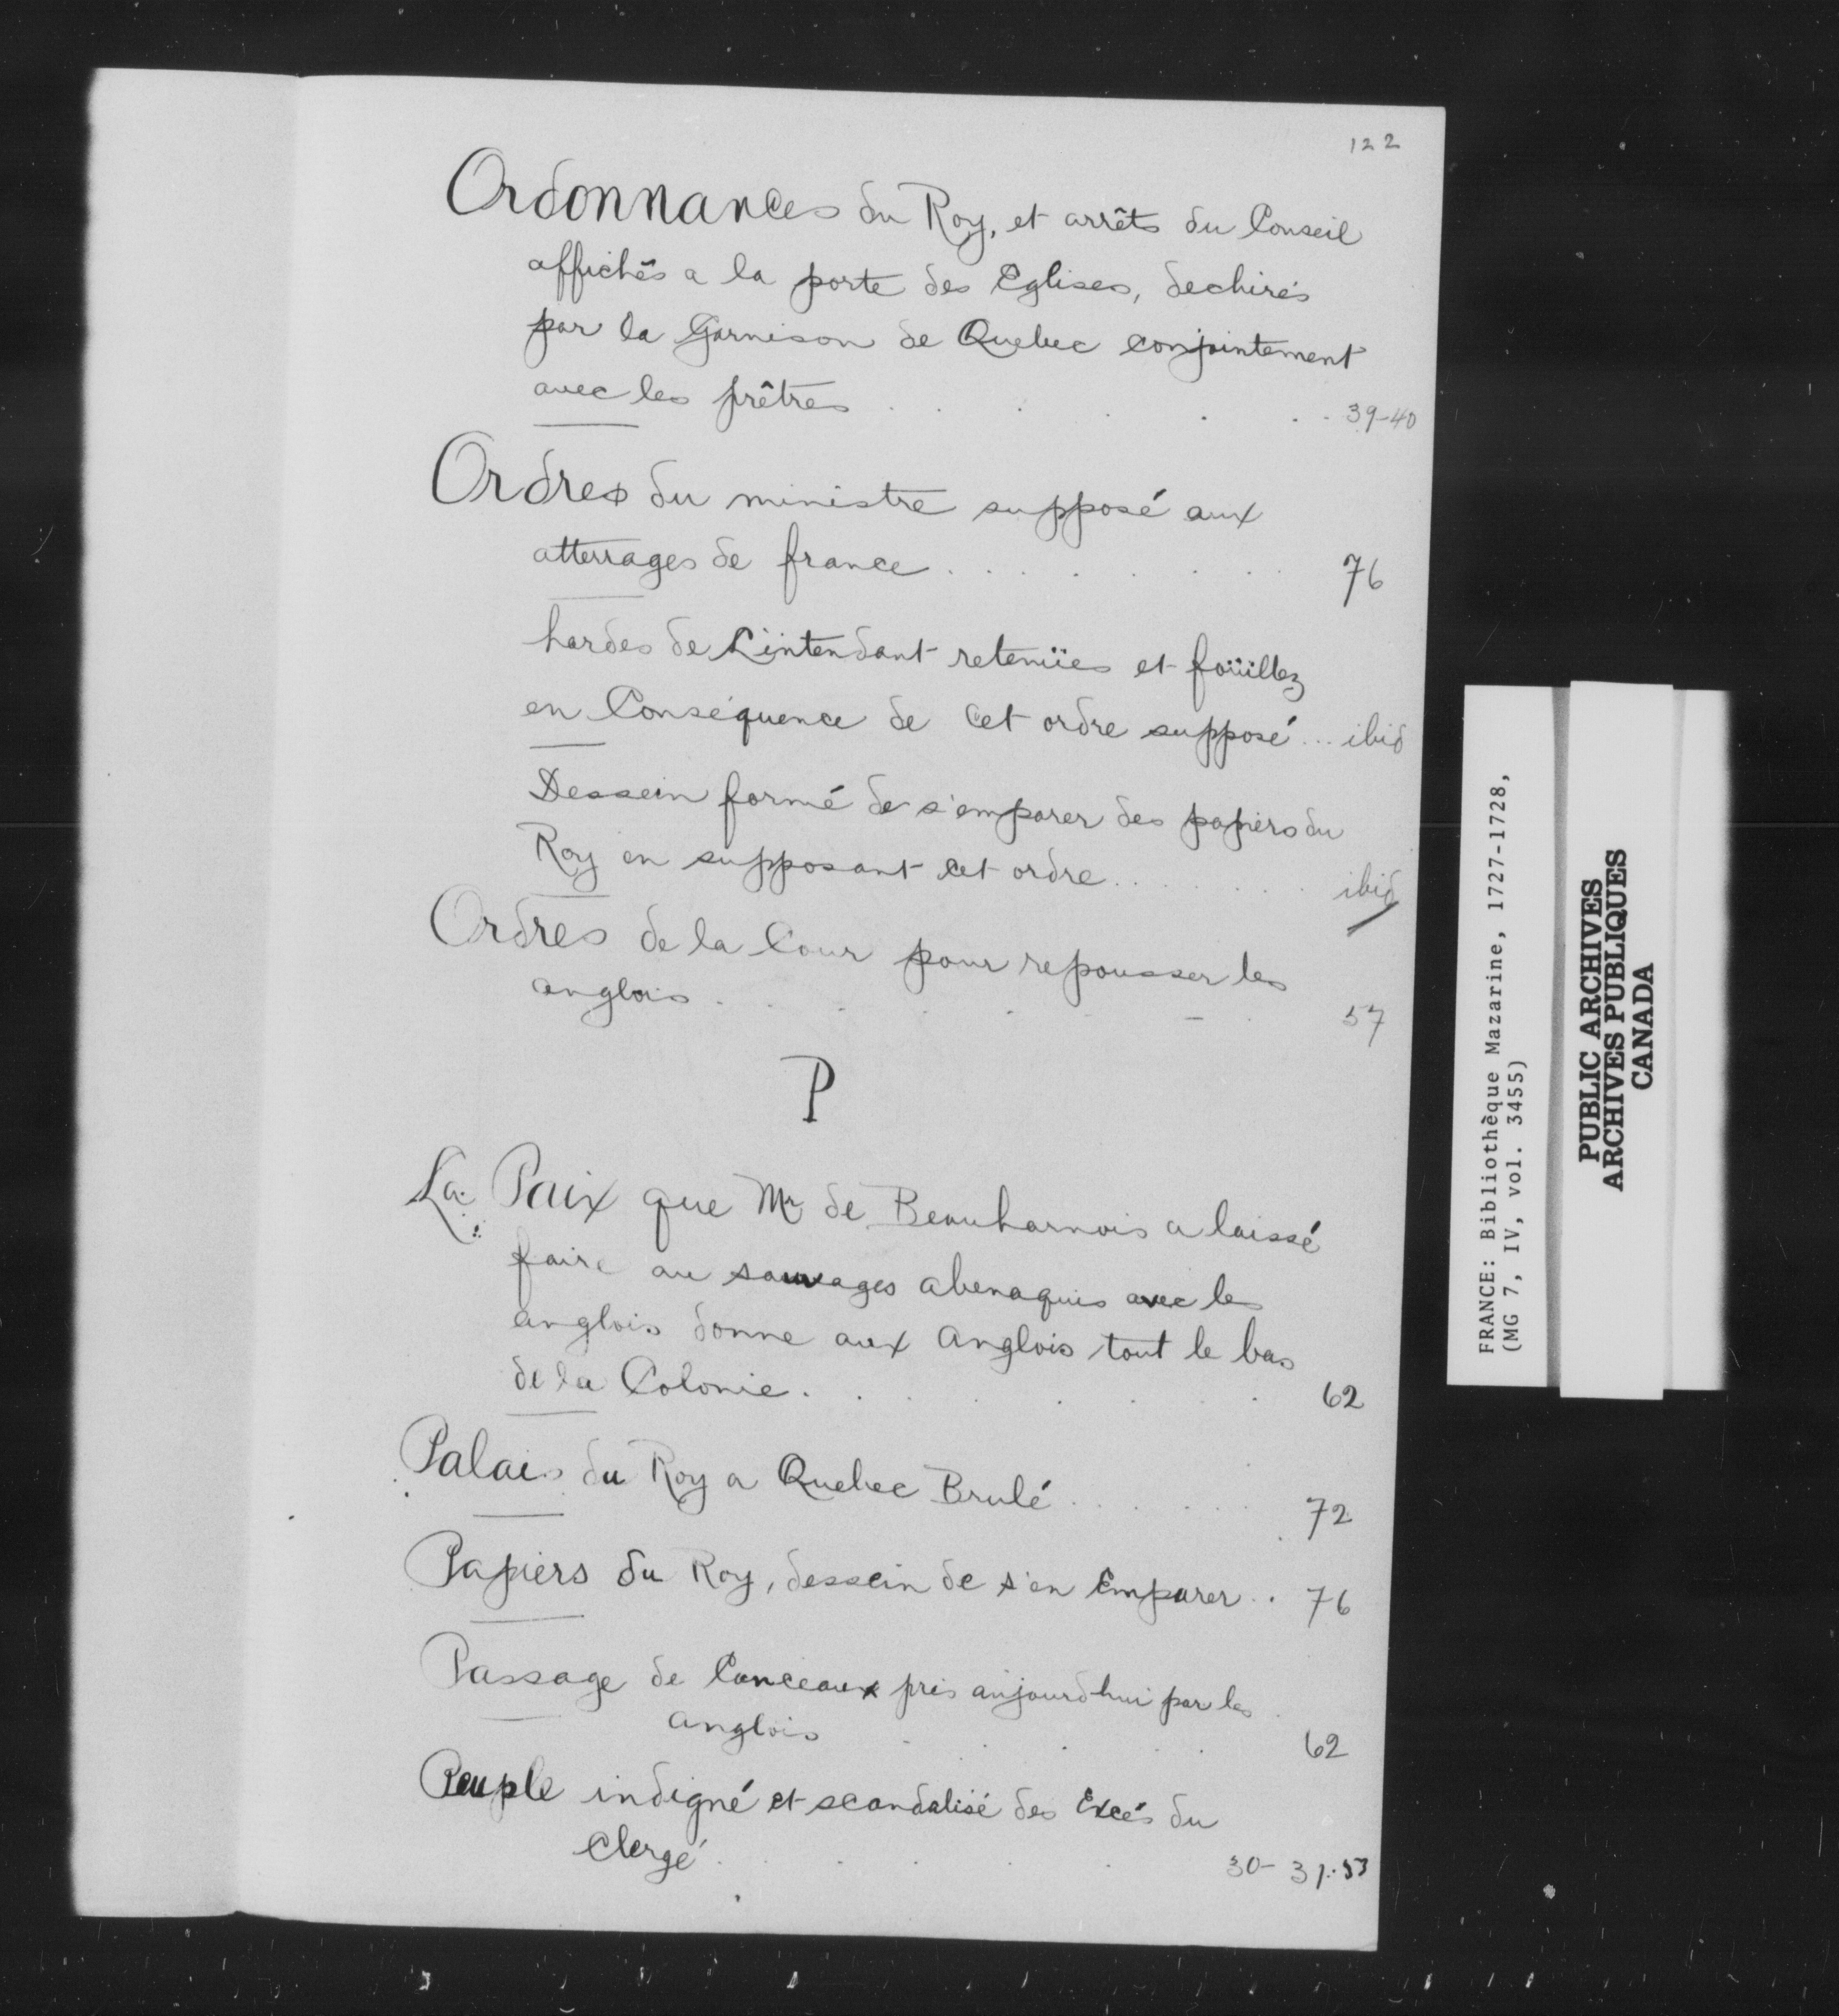 122
Ordonnances du Roy, et arrêts du Conseil
affichés a la porte des Eglises, dechirés
par la Garnison de Quebec conjointement
avec les prêtres . . . . . . 39-40
Ordres du ministre supposé aux
atterrages de france . . . . . . . 76
hardes de L'intendant retenües et foüillez
en Conséquence de Cet ordre supposé ... ibid
Dessein formé de s'emparer des papiers du
Roy en supposant cet ordre . . . . . . ibid
Ordres de la Cour pour repousser les
anglois . . . . . . 57
P
La Paix que Mr de Beauharnois a laissé
faire au sauvages abenaquis avec les
anglois donne aux Anglois tout le bas
de la Colonie . . . . . . 62
Palais du Roy a Quebec Brulé . . . . . 72
Papiers du Roy, dessein de s'en Emparer . . 76
Passage de Canceaux pris aujourdhui par les
anglois . . . . . 62
Peuple indigné et scandalisé des Excés du
Clergé . . . . . 30-31.53
FRANCE: Bibliothèque Mazarine, 1727-1728,
(MG 7, IV, vol. 3455)
PUBLIC ARCHIVES
ARCHIVES PUBLIQUES
CANADA